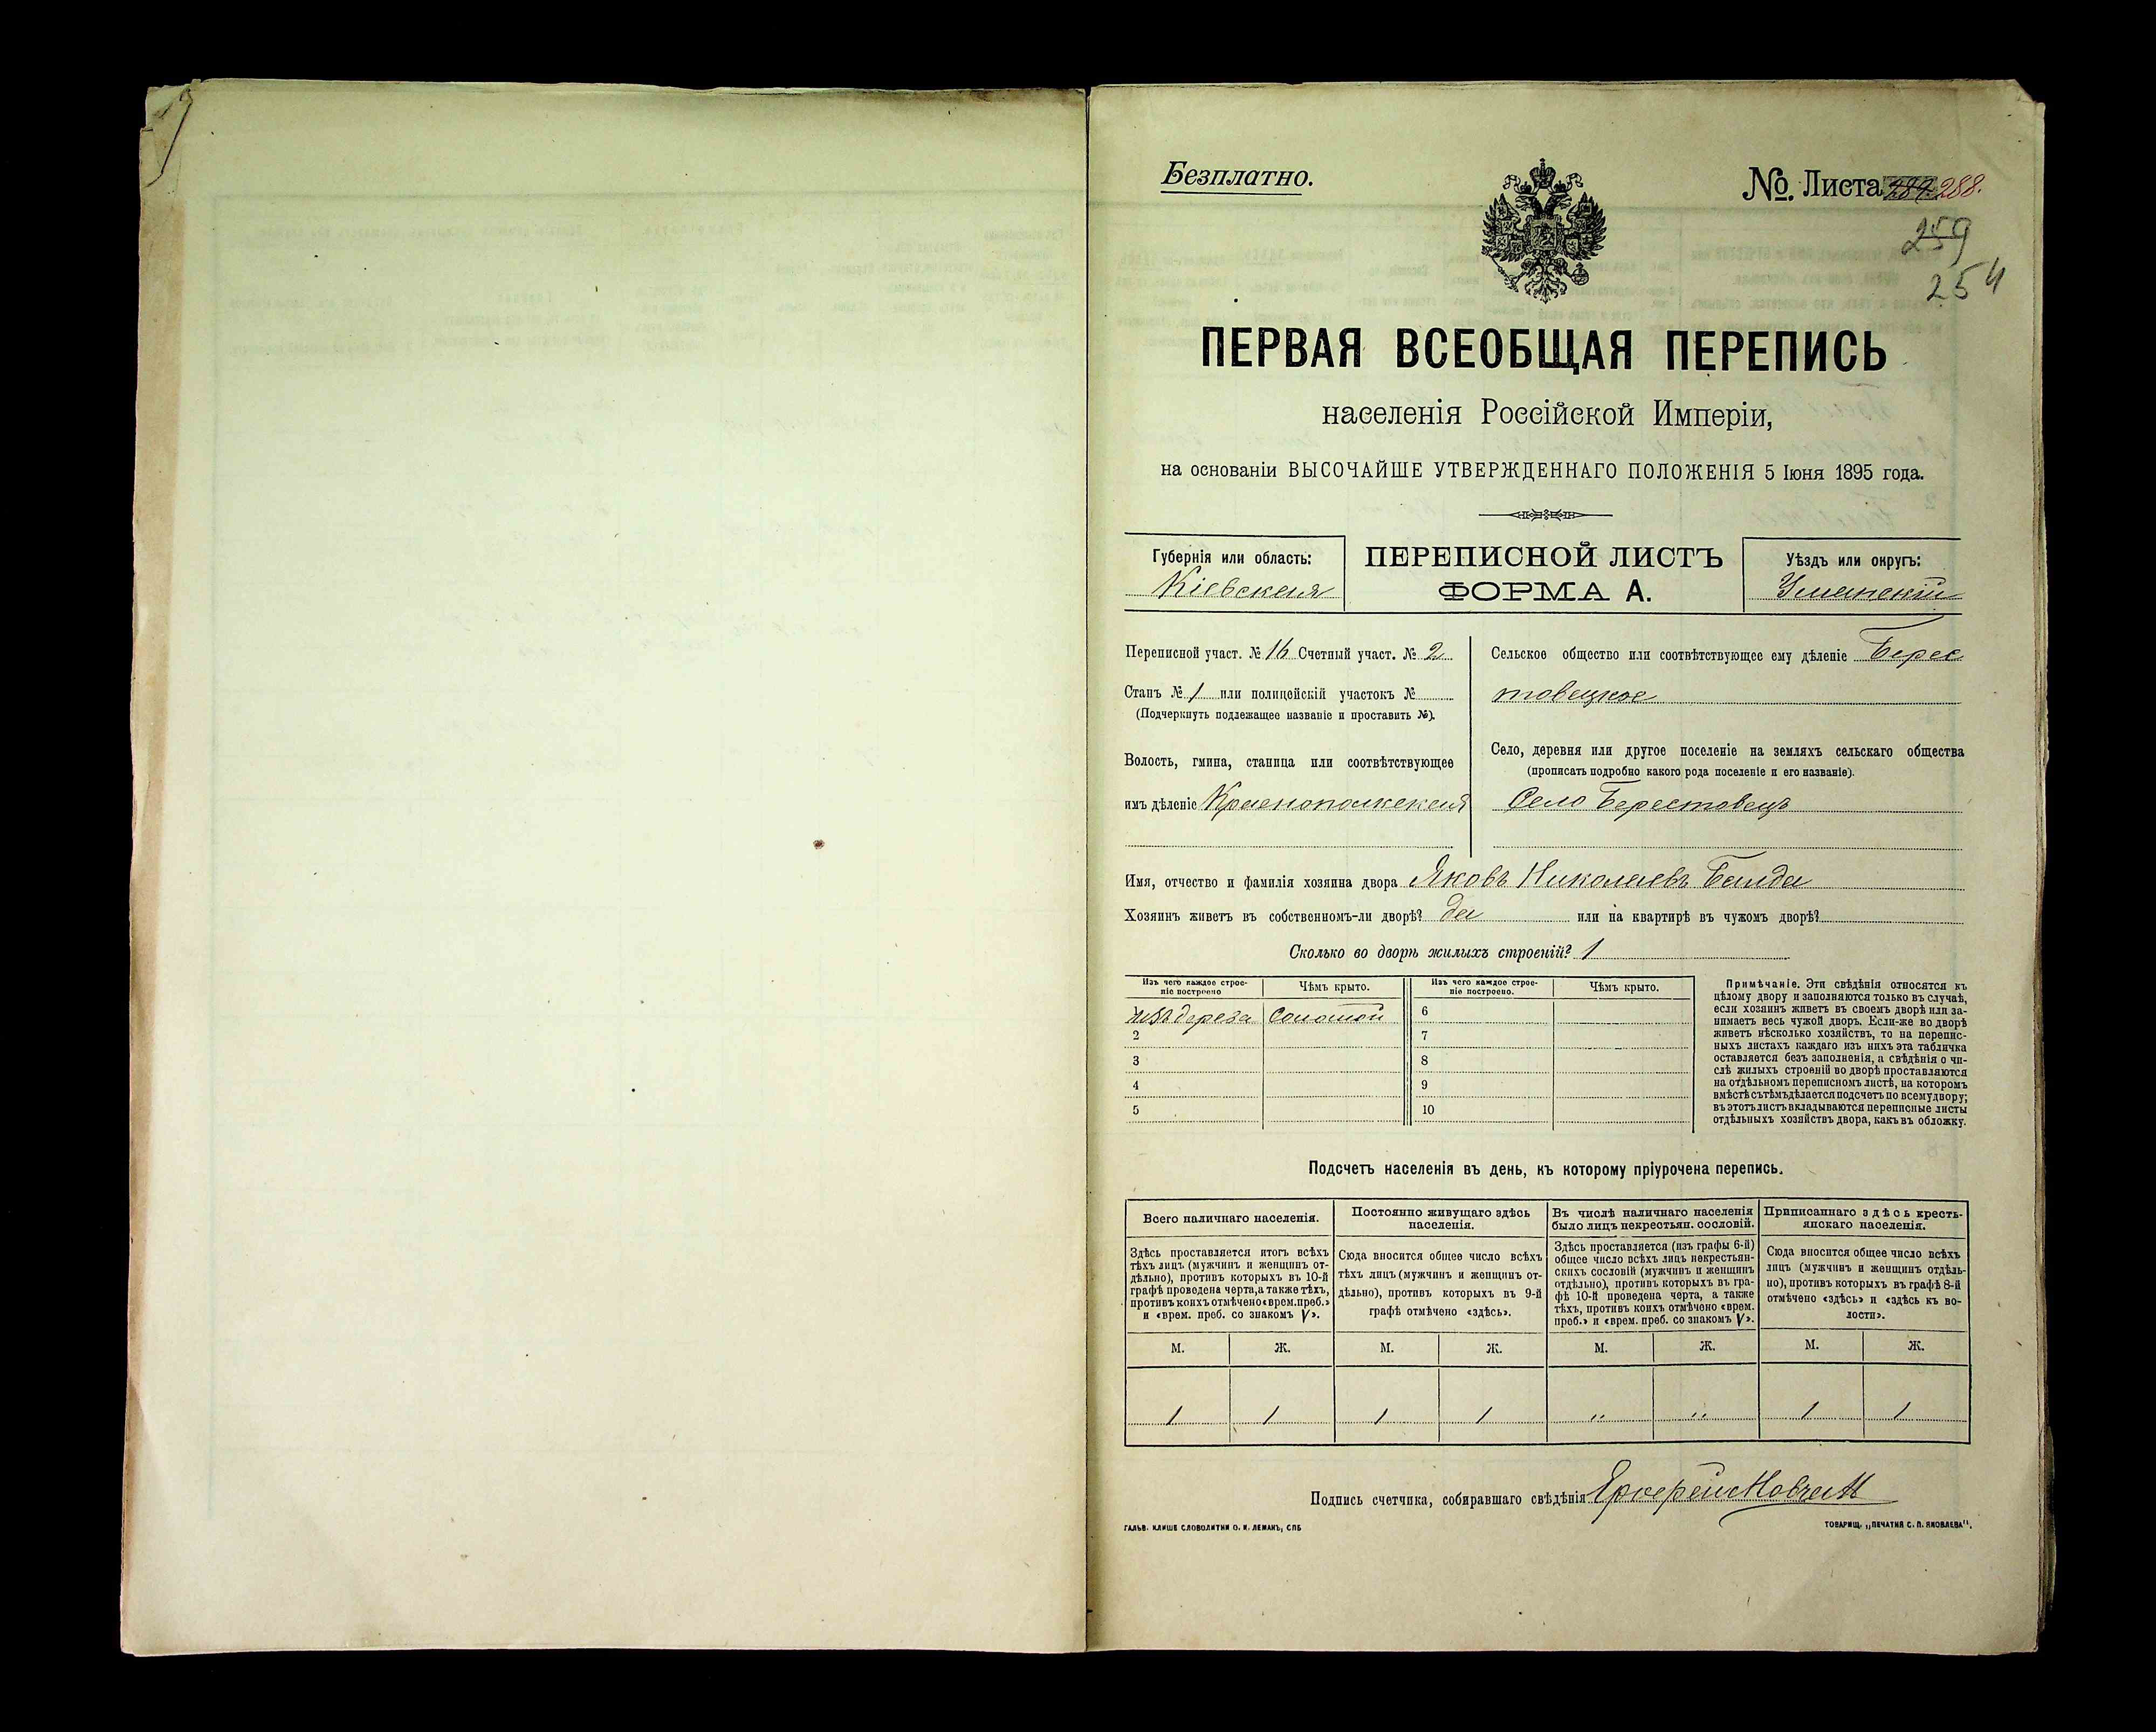 Безплатно.
№. Листа 288.
259
254
ПЕРВАЯ ВСЕОБЩАЯ ПЕРЕПИСЬ
населенія Россійской Имперіи,
на основаніи ВЫСОЧАЙШЕ УТВЕРЖДЕННАГО ПОЛОЖЕНІЯ 5 Іюня 1895 года.
Губернія или область:
Кіевская
ПЕРЕПИСНОЙ ЛИСТЪ
ФОРМА А.
Уѣздъ или округъ:
Уманскій
Переписной участ. № 16 Счетный участ. № 2
Станъ № 1 или полицейскій участокъ №
(Подчеркнуть подлежащее названіе и проставить №).
Волость, гмина, станица или соотвѣтствующее
имъ дѣленіе Краснополкская
Сельское общество или соотвѣтствующее ему дѣленіе Берес
товецкое
Село, деревня или другое поселеніе на земляхъ сельскаго общества
(прописать подробно какого рода поселеніе и его названіе).
Село Берестовецъ
Имя, отчество и фамилія хозяина двора Яковъ Николаевъ Баида
Хозяинъ живетъ въ собственномъ-ли дворѣ? да или на квартирѣ въ чужомъ дворѣ?
Сколько во дворѣ жилыхъ строеній? 1
Изъ чего каждое строе-
ніе построено
Чѣмъ крыто.
Изъ чего каждое строе-
ніе построено.
Чѣмъ крыто.
изъ дерева Соломой 6
2 7
3 8
4 9
5 10
Примѣчаніе. Эти свѣдѣнія относятся къ
цѣлому двору и заполняются только въ случаѣ,
если хозяинъ живетъ въ своемъ дворѣ или за-
нимаетъ весь чужой дворъ. Если-же во дворѣ
живетъ нѣсколько хозяйствъ, то на перепис-
ныхъ листахъ каждаго изъ нихъ эта табличка
оставляется безъ заполненія, а свѣдѣнія о чи-
слѣ жилыхъ строеній во дворѣ проставляются
на отдѣльномъ переписномъ листѣ, на которомъ
вмѣстѣ съ тѣмъ дѣлается подсчетъ по всему двору;
въ этотъ листъ вкладываются переписные листы
отдѣльныхъ хозяйствъ двора, какъ въ обложку.
Подсчетъ населенія въ день, къ которому пріурочена перепись.
Всего наличнаго населенія.
Здѣсь проставляется итогъ всѣхъ
тѣхъ лицъ (мужчинъ и женщинъ от-
дѣльно), противъ которыхъ въ 10-й
графѣ проведена черта, а также тѣхъ,
противъ коихъ отмѣчено «врем. преб.»
и «врем. преб. со знакомъ V».
Постоянно живущаго здѣсь
населенія.
Сюда вносится общее число всѣхъ
тѣхъ лицъ (мужчинъ и женщинъ от-
дѣльно), противъ которыхъ въ 9-й
графѣ отмѣчено «здѣсь».
Въ числѣ наличнаго населенія
было лицъ некрестьян. сословій.
Здѣсь проставляется (изъ графы 6-й)
общее число всѣхъ лицъ некрестьян-
скихъ сословій (мужчинъ и женщинъ
отдѣльно), противъ которыхъ въ гра-
фѣ 10-й проведена черта, а также
тѣхъ, противъ коихъ отмѣчено «врем.
преб.» и «врем. преб. со знакомъ V».
Приписаннаго здѣсь кресть-
янскаго населенія.
Сюда вносится общее число всѣхъ
лицъ (мужчинъ и женщинъ отдѣль-
но), противъ которыхъ въ графѣ 8-й
отмѣчено «здѣсь» и «здѣсь къ во-
лости».
М. Ж. М. Ж. М. Ж. М. Ж.
1 1 1 1 " " 1 1
Подпись счетчика, собиравшаго свѣдѣнія
ГАЛЬВ. КЛИШЕ СЛОВОЛИТНИ О. И. ЛЕМАНЪ, СПБ
ТОВАРИЩ. „ПЕЧАТНЯ С. П. ЯКОВЛЕВА".